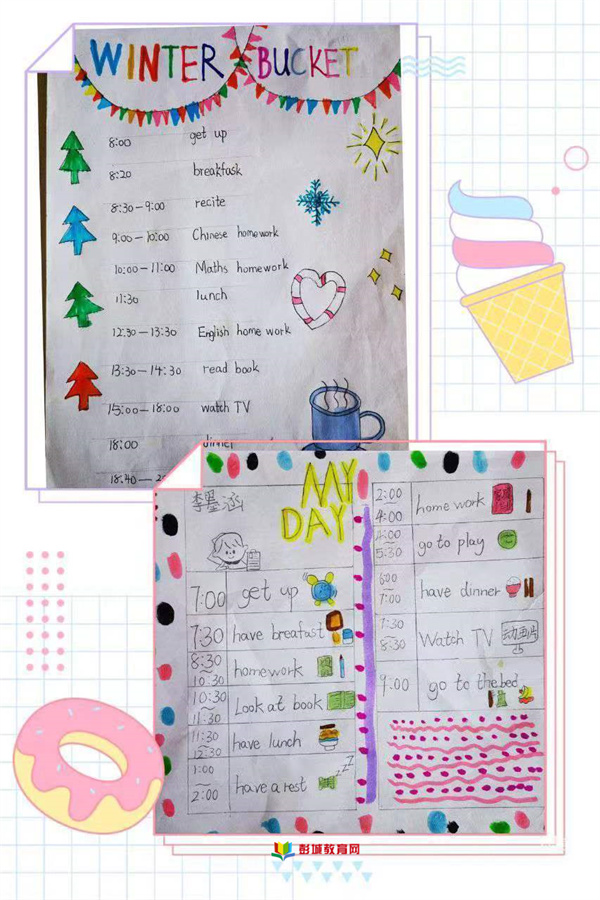 WINTER BUCKET
8:00 get up
8:20 breakfask
8:30-9:00 recite
9:00-10:00 Chinese homework
10:00-11:00 Maths homework
11:30 lunch
12:30-13:30 English home work
13:30-14:30 read book
15:00-18:00 watch TV
18:00
18:40-
MY
DAY
7:00 get up
7:30 have breafast
8:30~10:30 homework
10:30~11:30 Look at book
11:30~12:30 have lunch
1:00~2:00 have a rest
2:00~4:00 home work
4:00~5:30 go to play
6:00~7:00 have dinner
7:30~8:30 Watch TV 动画片
9:00 go to the bed
彭城教育网